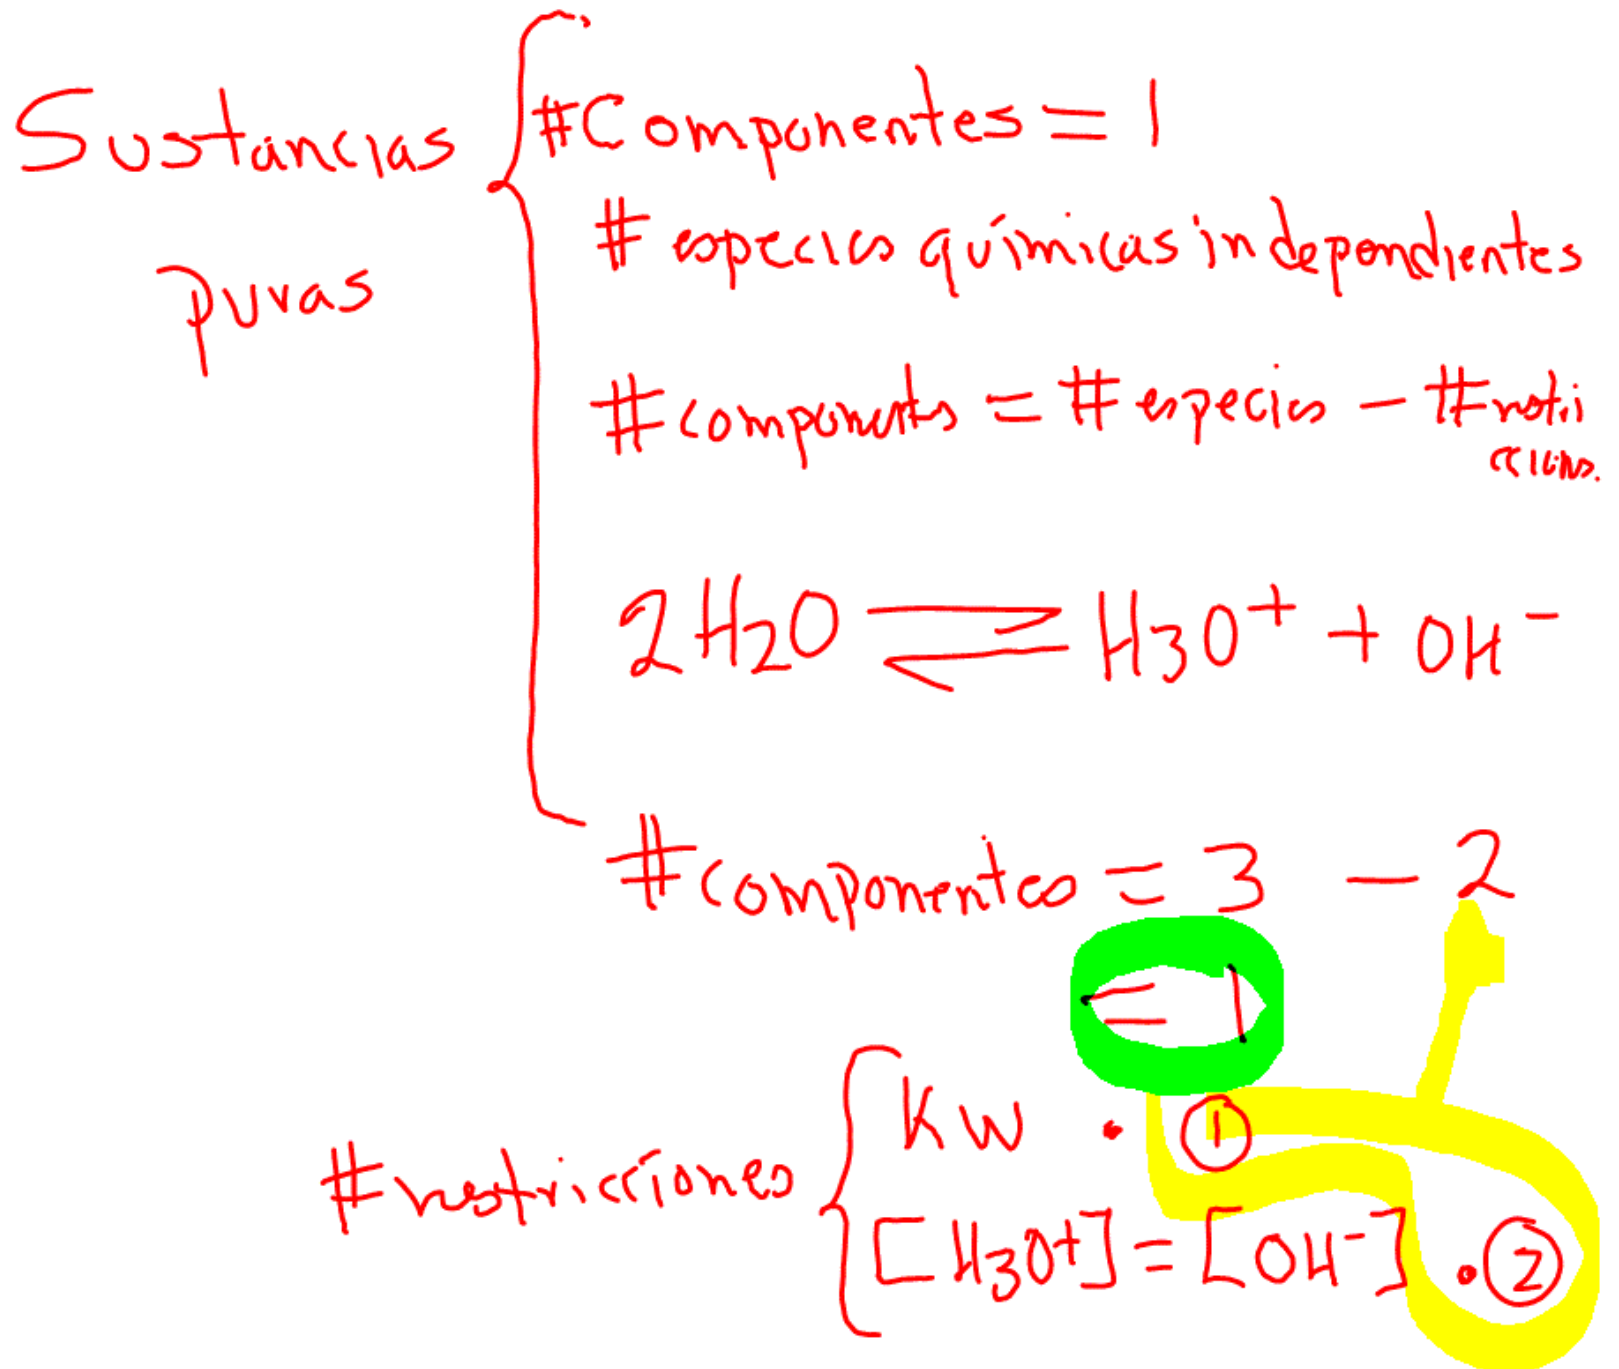 Sustancias
puras
#Componentes = 1
# especies químicas independientes
#componentes = # especies - #restri
cciones.
2H2O ⇌ H3O+ + OH-
#componentes = 3 - 2
= 1
#restricciones
Kw . 1
[H3O+] = [OH-] . 2